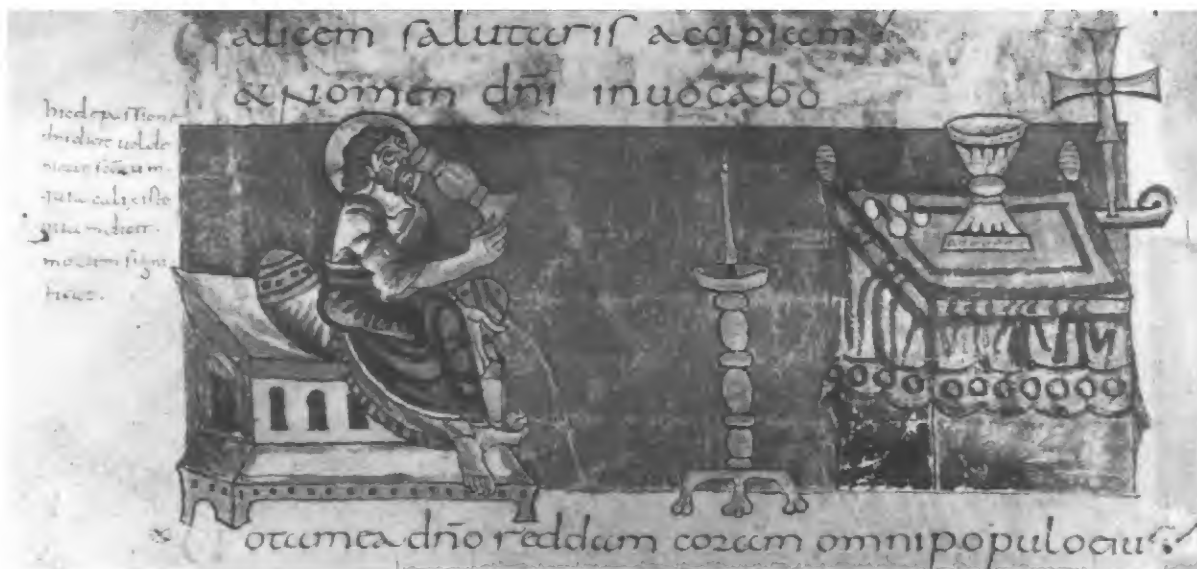 alicem salutaris accipiam
& nomen dñi inuocabo
hic de passione
dñi dicit
calix iste
otamea dño reddam coram omnipopulo eius